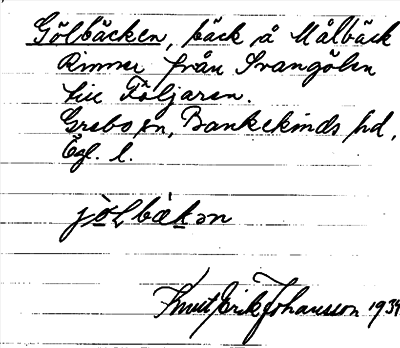 Gölbäcken, bäck å Målbäck
Rinner från Svangölen
till Följaren.
Grebo sn, Bankekinds hd,
Ög. l.
jölbäkən
Knut Erik Johansson 1934